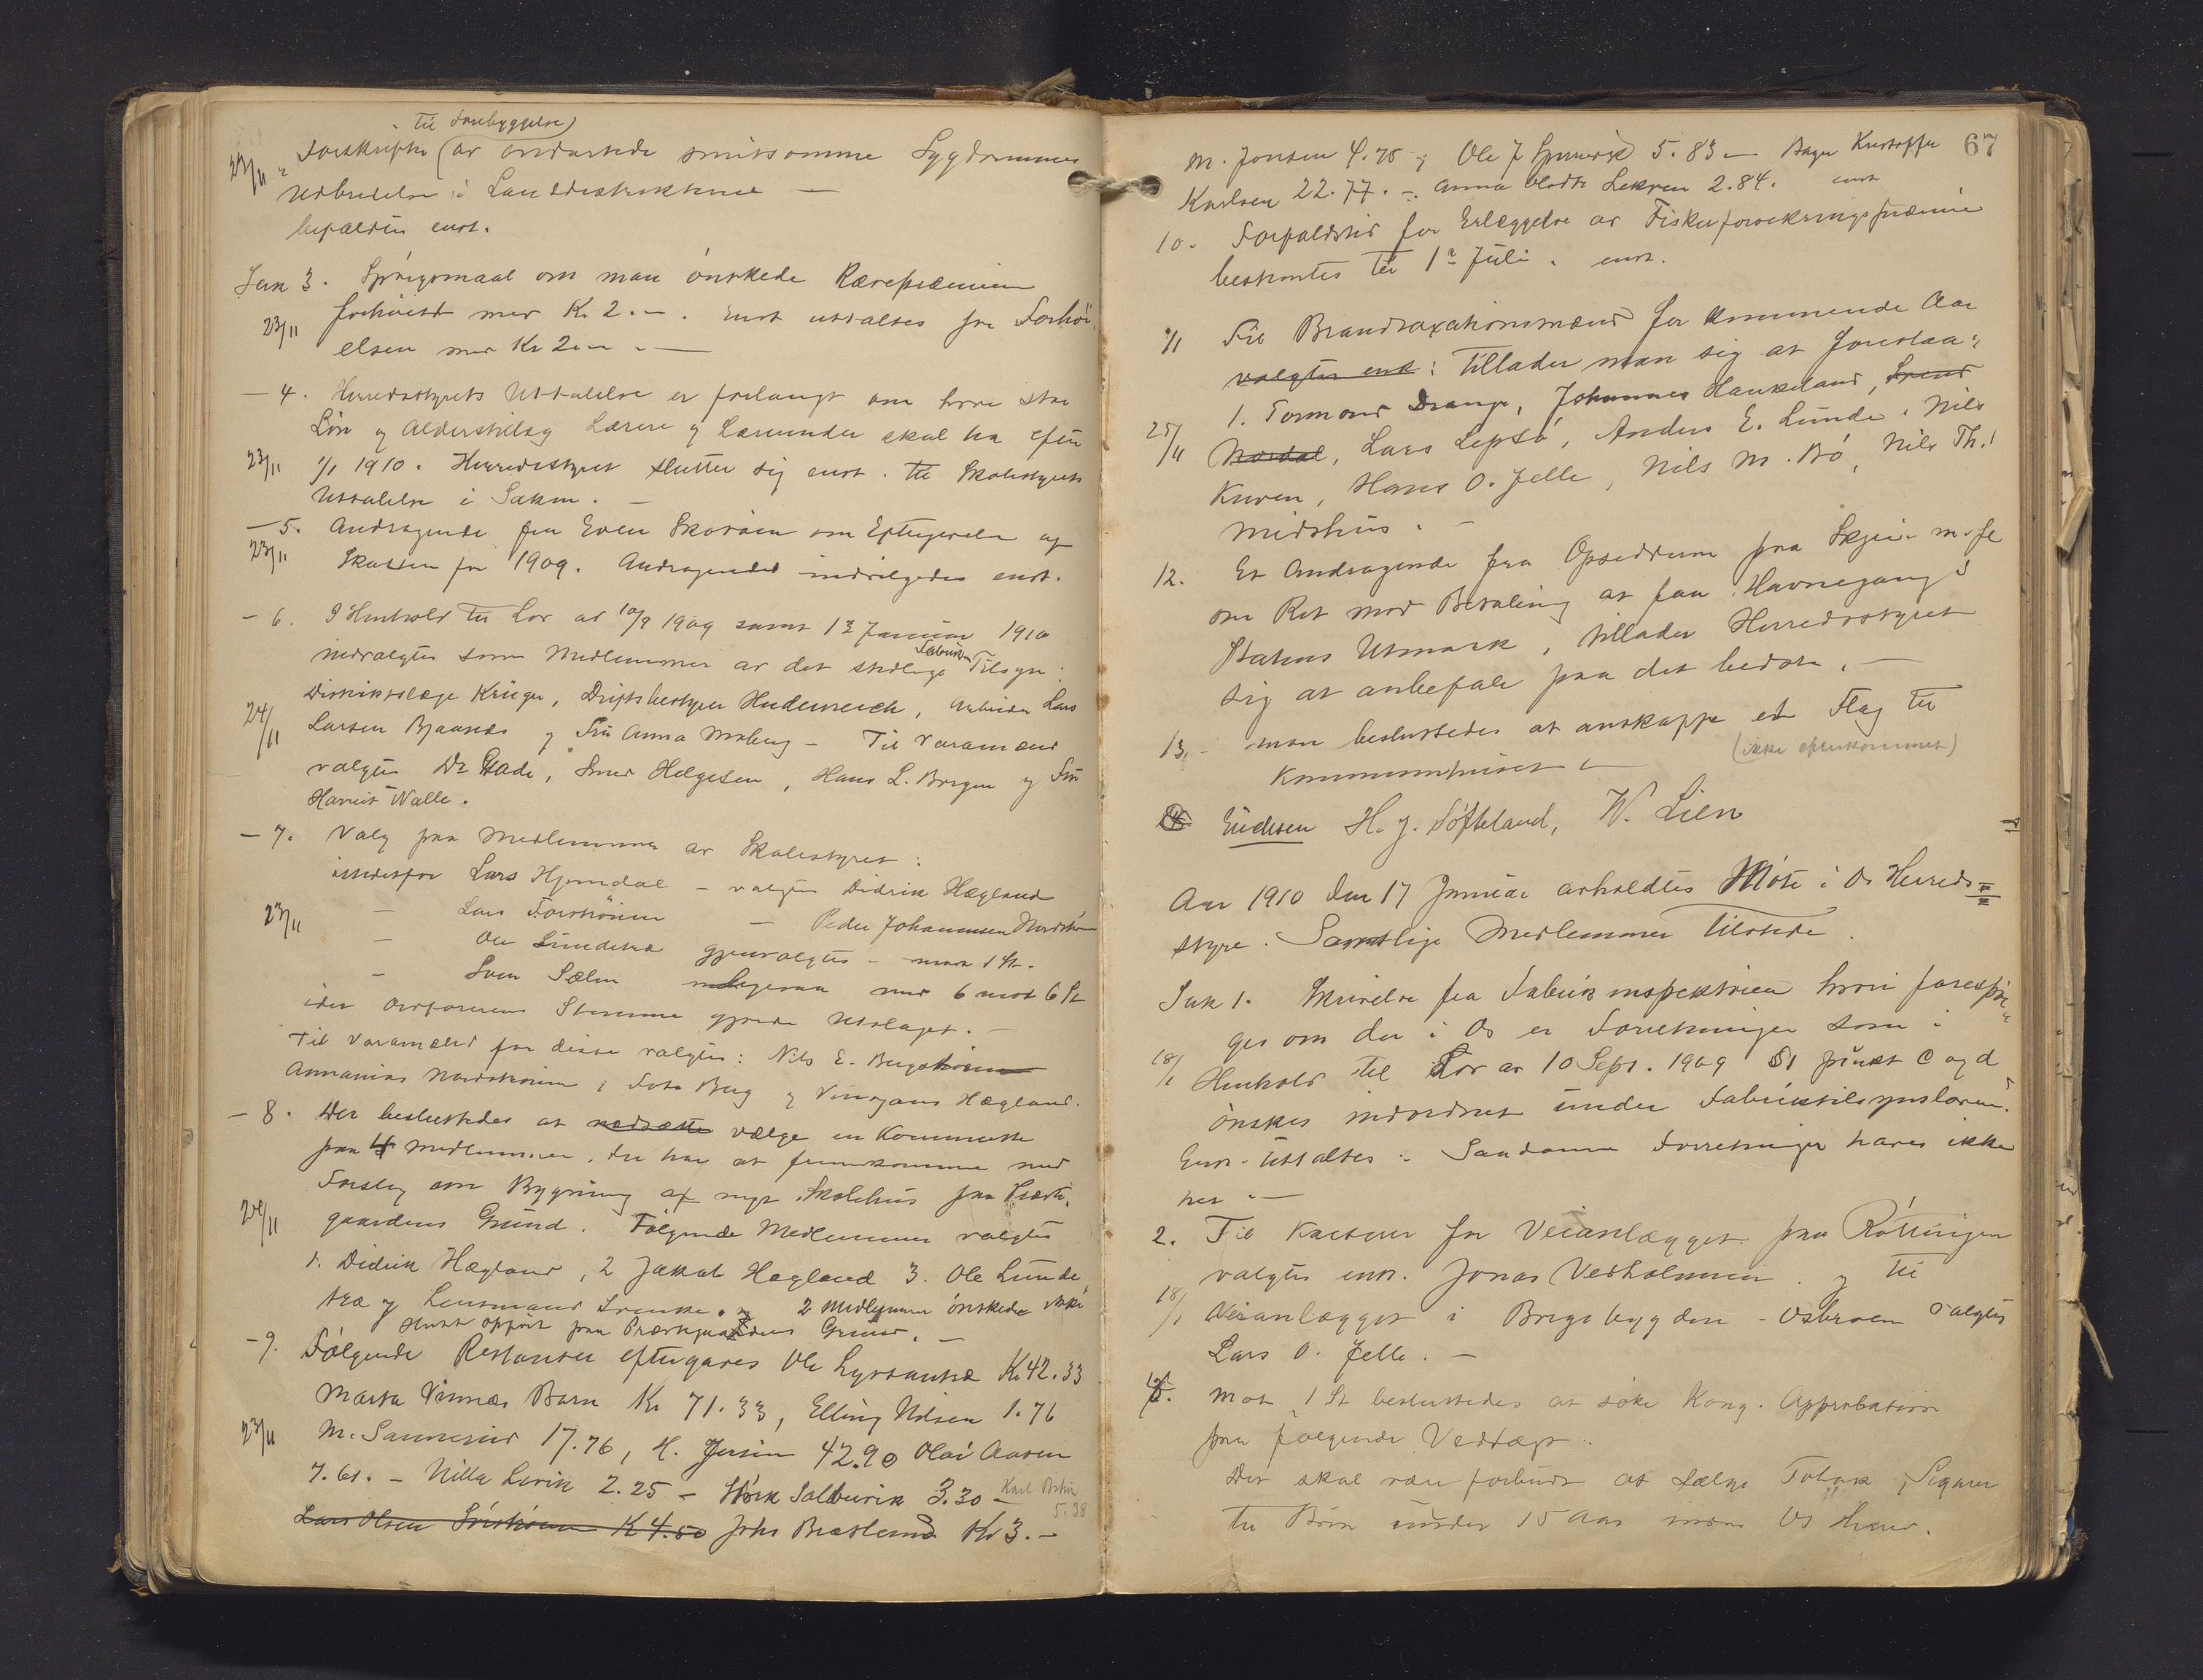 til Forebyggelse
Forskrifter av ondartede smitsomme Sygdommes
Utbredelse i Landdistrikterne —
befaldtes enst.
Sak 3. Spörgsmaal om man önskede Rævepræmien
forhöiet med Kr 2.–. Enst uttaltes for Forhöi-
23/11
elsen med Kr 2.– —
— 4. Herredsstyrets Uttalelse er forlangt om hvor stor
Lön og Alderstillæg Lærere og Lærerinder skal ha efter
23/11 1/1 1910. Herredsstyret slutter sig enst. til Skolestyrets
Uttalelse i Saken. —
— 5. Andragende fra Even Skoraen om Eftergivelse af
23/11 Skatten for 1909. Andragendet indvilgedes enst.
— 6. I Henhold til Lov av 10/9 1909 samt 1ste Januar 1910
Fabrik
nedvalgtes som Medlemmer av det stedlige Tilsyn:
Distriktslæge Krüger, Driftsbestyrer Heidenreich, Arbeider Lars
24/11 Larsen Bjaanes og Fru Anna Moberg — Til Varamænd
valgtes Dr Gade, Smed Helgesen, Hans L. Borgen og Fru
Harriet Walle.
— 7. Valg paa Medlemmer av Skolestyret:
istedetfor Lars Hjemdal — valgtes Didrik Hægland
23/11 — Lars Forströnen — Peder Johannessen Nordström
— Ole Lundetræ gjenvalgtes — mot 1 St.
— Sven Sælen med 6 mot 6 St
idet Ordförerens Stemme gjorde Utslaget. —
Til Varamænd for disse valgtes: Nils E. Bergström
Annanias Nordström, Fota Berg og Hægland.
— 8. Der besluttedes at nedsætte vælge en Kommitte
paa 4 Medlemmer, der har at fremkomme med
Forslag om Bygning af nyt Skolehus paa Præste-
gaardens Grund. Følgende Medlemmer valgtes
1. Didrik Hægland, 2 Jakob Hægland 3. Ole Lunde-
træ og Lensmand 2 Medlemmer önskede ikke
Huset opfört paa Præstegaardens Grund. —
— 9. Følgende Restanser eftergaves Ole Lyssantræ Kr 42.33
Marta Vinnes Barn Kr 71.33, Elling Nilsen 1.76
23/11 M. 17.76, H. Jensen 42.90 Olai Aasen
7.61. — Nilla Lavik 2.25 — Sölvik 3.30 — Karl
5.38
Lars Olsen Kr 4.50 Johs Kr 3.—
67
M. Jonsen 4.78 og Ole J 5.83 — Kristoffer
Karlsen 22.77. — Anna 2.84. enst
10. Forfaldstid for Erlæggelse av Fiskerforsikringspræmie
bestemtes til 1ste Juli. enst.
11 Til Brandtaxationsmænd for kommende Aar
valgtes enst: tillader man sig at foreslaa:
1. Tormod Drange, Johannes Haukeland, Svend
25/11 Nordal, Lars Lepsö, Anders E. Lunde, Nils
Kuven, Hans O. Jelle, Nils M. Bö, Nils Th.
Midthus. —
12. Et Andragende fra Opsidderne paa Skjeie m. fl
om Ret mod Betaling at faa Havnegang i
Statens Utmark, tillader Herredsstyret
sig at anbefale paa det bedste. —
13. — Man besluttedes at anskaffe et Flag til
Kommunehuset — (ikke efterkommet)
Eidesen H. J. Söfteland, W. Lien
Aar 1910 den 17 Januar avholdtes Möte i Os Herreds-
styre. Samtlige Medlemmer tilstede.
Sak 1. Skrivelse fra Fabrikinspektören hvori forespör-
ges om der i Os er Forretninger som i
18/1 Henhold til Lov av 10 Sept. 1909 §1 punkt c og d
önskes indordnet under Fabriktilsynsloven.
Enst. uttaltes: Saadanne Forretninger haves ikke
her. —
2. Til Kasserer for Veianlægget paa Röttingen
valgtes enst. Jonas Vedholmen. og til
18/1 Veianlægget i Bregebygden — Osbroen valgtes
Lars O. Jelle. —
3. Mot 1 St besluttedes at söke Kong. Approbation
paa følgende Vedtægt:
Der skal være forbudt at sælge Tobak, Sigarer
til Börn under 15 Aar inden Os Herred.